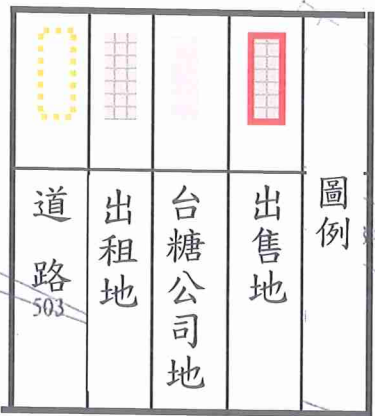 圖例
出售地
台糖公司地
出租地
道路
503